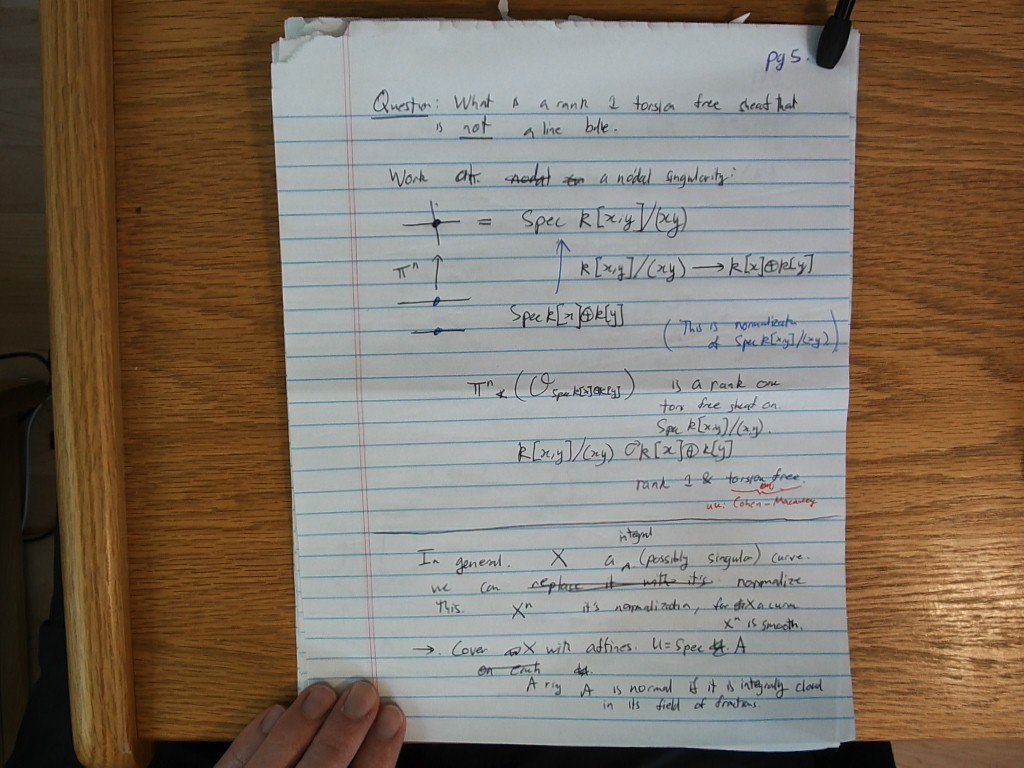 pg 5.
Question: What is a rank 1 torsion free sheaf that
is not a line bdle.
Work at a nodal singularity:
= Spec k[x,y]/(xy)
πⁿ ↑ ↑ k[x,y]/(xy) → k[x]⊕k[y]
Spec k[x]⊕k[y]
(This is normalization
of Spec k[x,y]/(xy))
πⁿ* (O Spec k[x]⊕k[y]) is a rank one
tor free sheaf on
Spec k[x,y]/(xy).
k[x,y]/(xy) ↻ k[x]⊕k[y]
rank 1 & torsion free.
use Cohen-Macaulay
integral
In general. X a ^ (possibly singular) curve.
we can replace it with it's normalize
this. Xⁿ it's normalization, for X a curve
Xⁿ is smooth.
→. Cover X with affines. U = Spec A
on each
A ring A is normal if it is integrally closed
in its field of fractions.